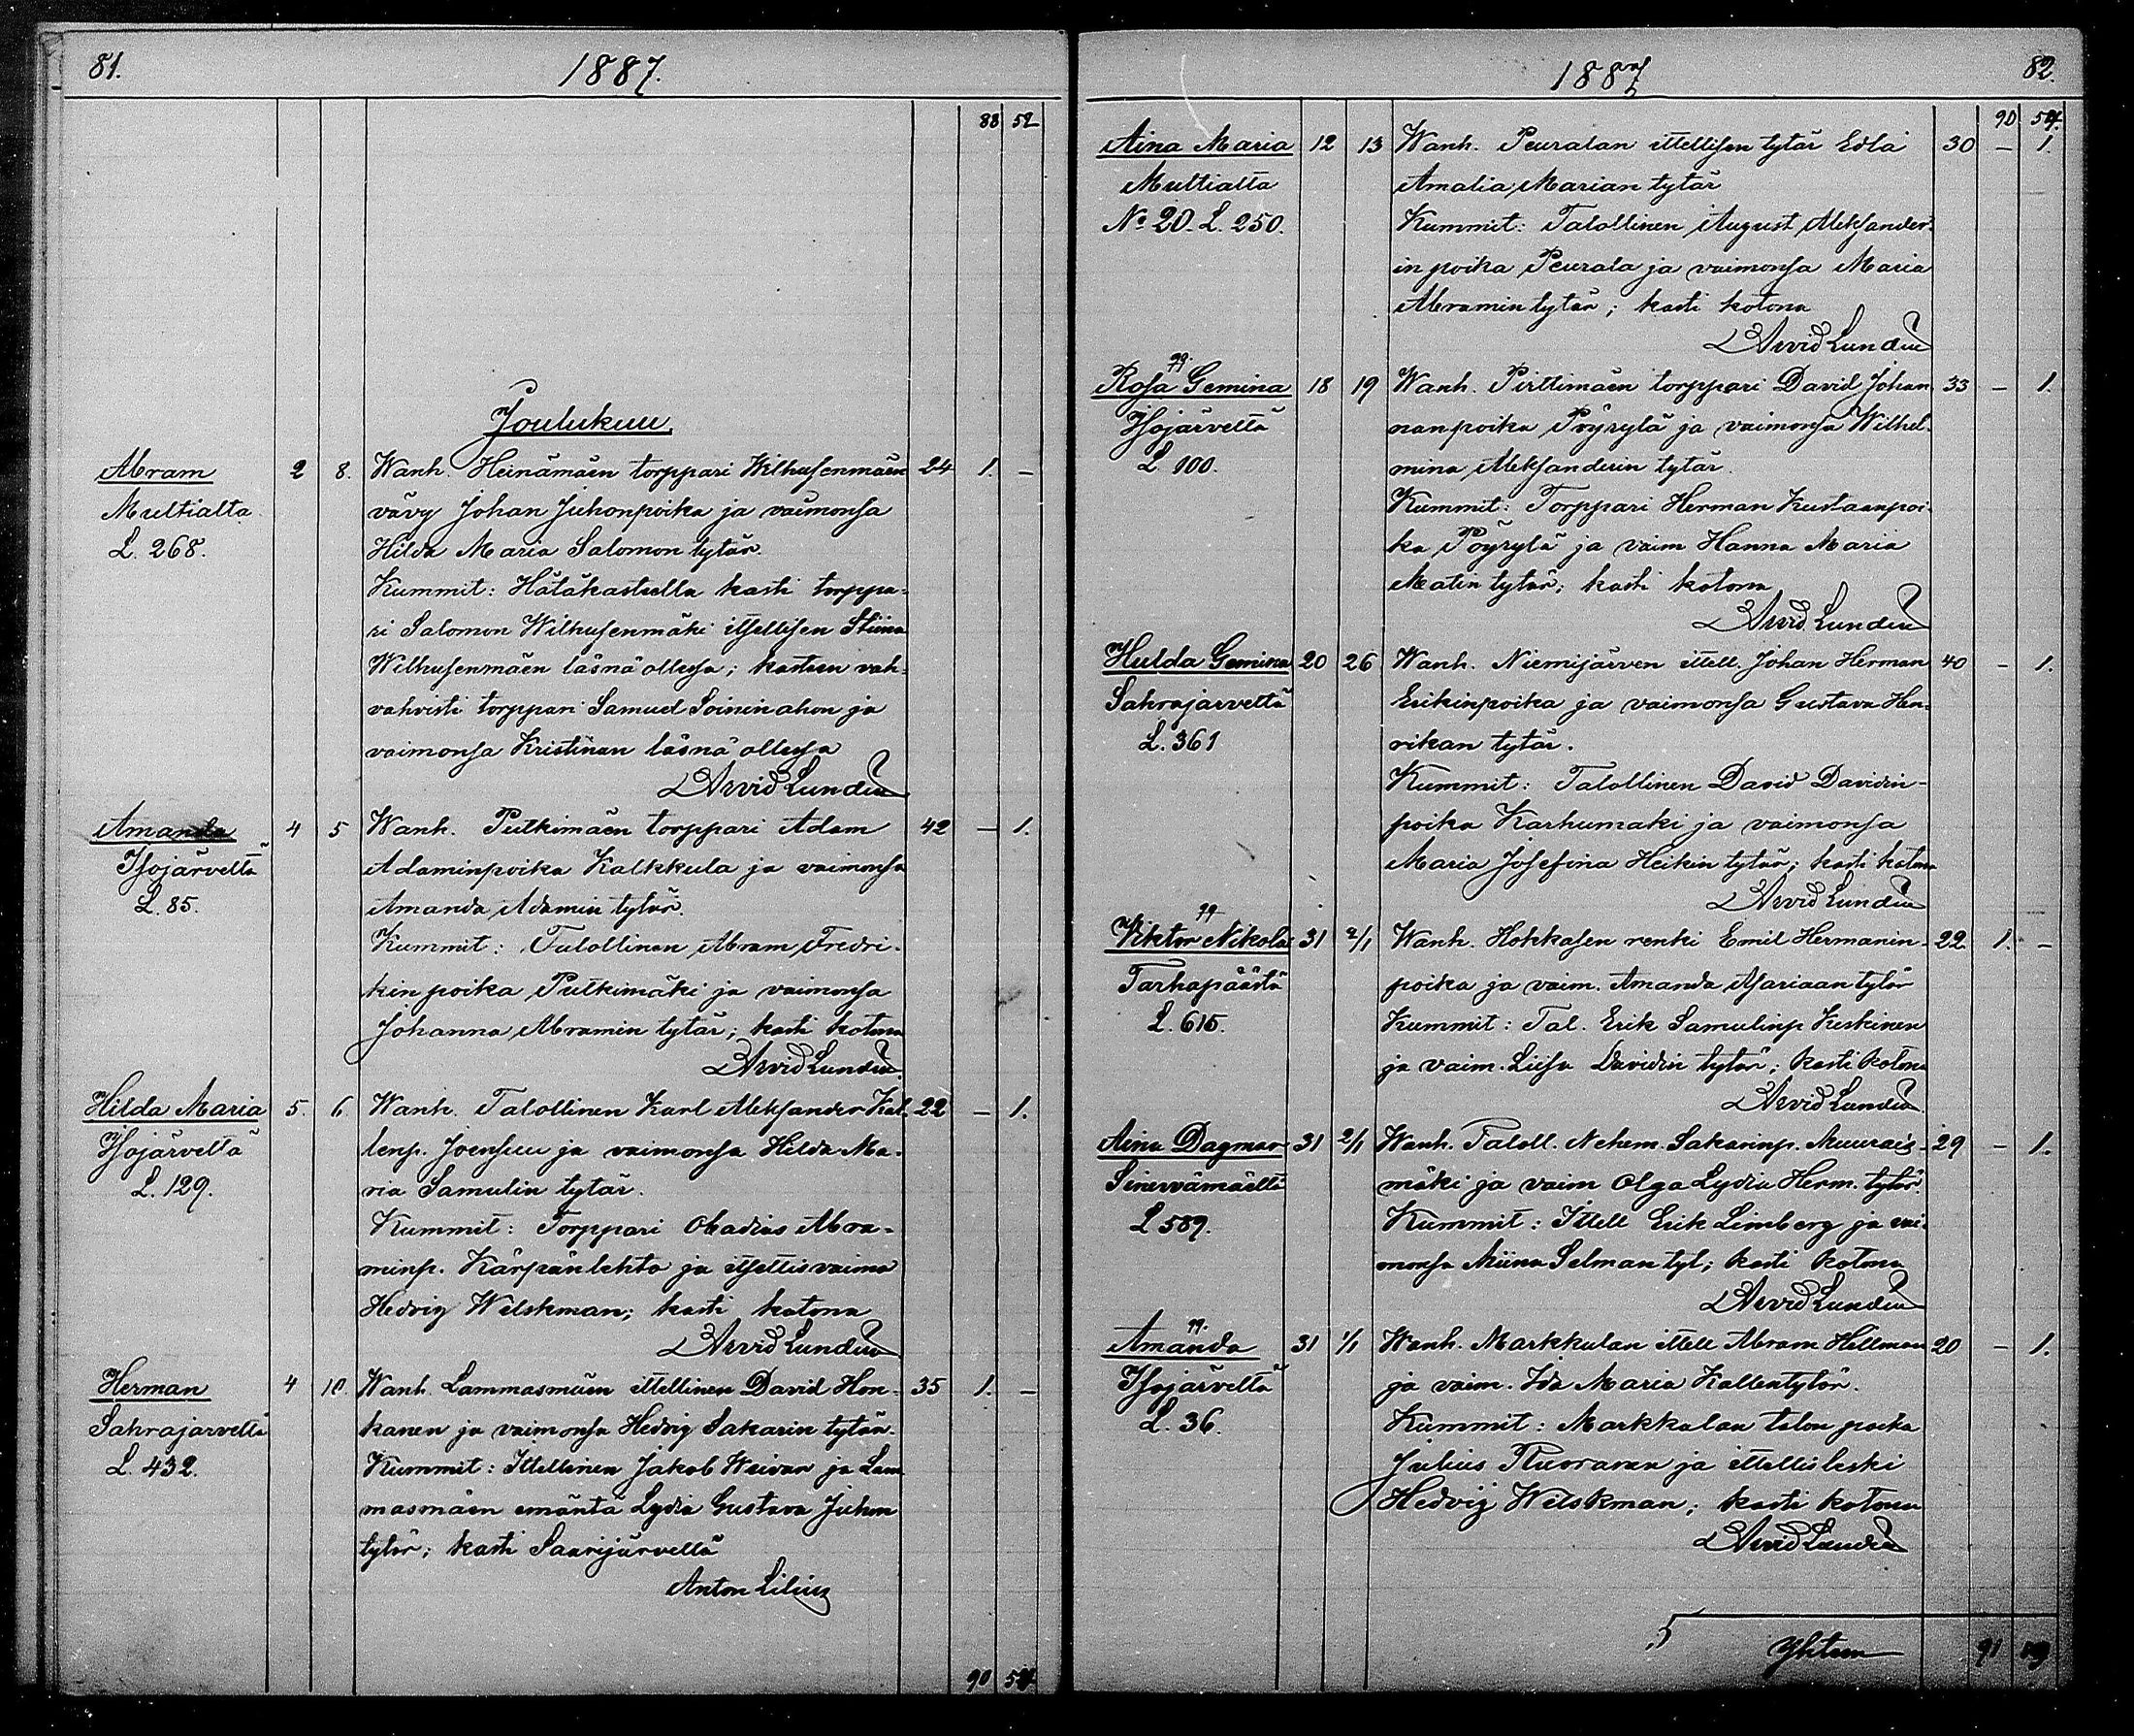 81.
1887.
88 52
Joulukuu.
Abram 2 8. Wanh. Heinämäen torppari Wilhusenmäen 24 1. –
Multialta vävy Johan Juhonpoika ja vaimonsa
L. 268. Hilda Maria Salomon tytär.
Kummit: Hätäkasteella kasti torppa-
ri Salomon Wilhusenmäki itsellisen Stiina
Wilhusenmäen läsnä ollessa; kasteen vah-
vahvisti torppari Samuel Soininahon ja
vaimonsa Kristiinan läsnä ollessa
Arvid Lundin
Amanda 4 5 Wanh. Putkimäen torppari Adam 42 – 1.
Isojärveltä Adaminpoika Kalkkula ja vaimonsa
L. 85. Amanda Adamin tytär.
Kummit: Talollinen Abram Fredri-
kin poika Putkimäki ja vaimonsa
Johanna Abramin tytär; kasti kotona
Arvid Lundin
Hilda Maria 5. 6 Wanh. Talollinen Karl Aleksander Kal- 22 – 1.
Isojärveltä lenp. Joensuu ja vaimonsa Hilda Ma-
L. 129. ria Samulin tytär.
Kummit: Torppari Obadias Abra-
minp. Kärpänlehto ja itsellisvaimo
Hedvig Wilskman; kasti kotona
Arvid Lundin
Herman 4 10. Wanh. Lammasmäen ittellinen David Hon- 35 1. –
Sahrajarveltä kanen ja vaimonsa Hedvig Sakarin tytär.
L. 432. Kummit: Ittellinen Jakob Weivar ja Lam
masmäen emäntä Lydia Gustava Juhon
tytär; kasti Saarijärvellä
Anton Lilius
90 54
1887
82.
90 54.
Aina Maria 12 13 Wanh. Peuralan ittellisen tytär Edla 30 – 1.
Multialta Amalia Marian tytär
No 20. L. 250. Kummit: Talollinen August Aleksander-
in poika Peurala ja vaimonsa Maria
Abramin tytär; kasti kotona
Arvid Lundin
Rosa Gemina 18 19 Wanh. Pirttimäen torppari David Johan 33 – 1.
Isojärveltä nanpoika Pöyrylä ja vaimonsa Wilhel-
L 100. mina Aleksanderin tytär.
Kummit: Torppari Herman Kustaanpoi-
ka Pöyrylä ja vaim Hanna Maria
Matin tytär; kasti kotona
Arvid Lundin
Hulda Gemina 20 26 Wanh. Niemijärven ittell. Johan Herman 40 – 1.
Sahrajarveltä Erikinpoika ja vaimonsa Gustava Hen-
L. 361 rikan tytär.
Kummit: Talollinen David Davidin-
poika Karhumaki ja vaimonsa
Maria Josefina Heikin tytär; kasti kotona
Arvid Lundin
Viktor Nikolai 31 2/1 Wanh. Hokkasen renki Emil Hermanin- 22 1. –
Tarhapäästä poika ja vaim. Amanda Asariaan tytär
L. 615. Kummit: Tal. Erik Samulinp Keskinen
ja vaim. Liisa Davidin tytär; kasti kotona
Arvid Lundin
Aina Dagmar 31 2/1 Wanh. Taloll. Nehem. Sakarinp. Muurais- 29 – 1.
Sinervämäeltä mäki ja vaim Olga Lydia Herm. tytär.
L 589. Kummit: Ittell Erik Limberg ja vai-
monsa Miina Selman tyt; kasti kotona
Arvid Lundin
Amanda 31 1/1 Wanh. Markkulan ittell Abram Hellman 20 – 1.
Isojärveltä ja vaim. Ida Maria Kallentytär.
L. 36. Kummit: Markkulan talon poika
Julius Tuoranen ja ittellisleski
Hedvig Wilskman; kasti kotona
Arvid Lundin
Yhteen 91 59